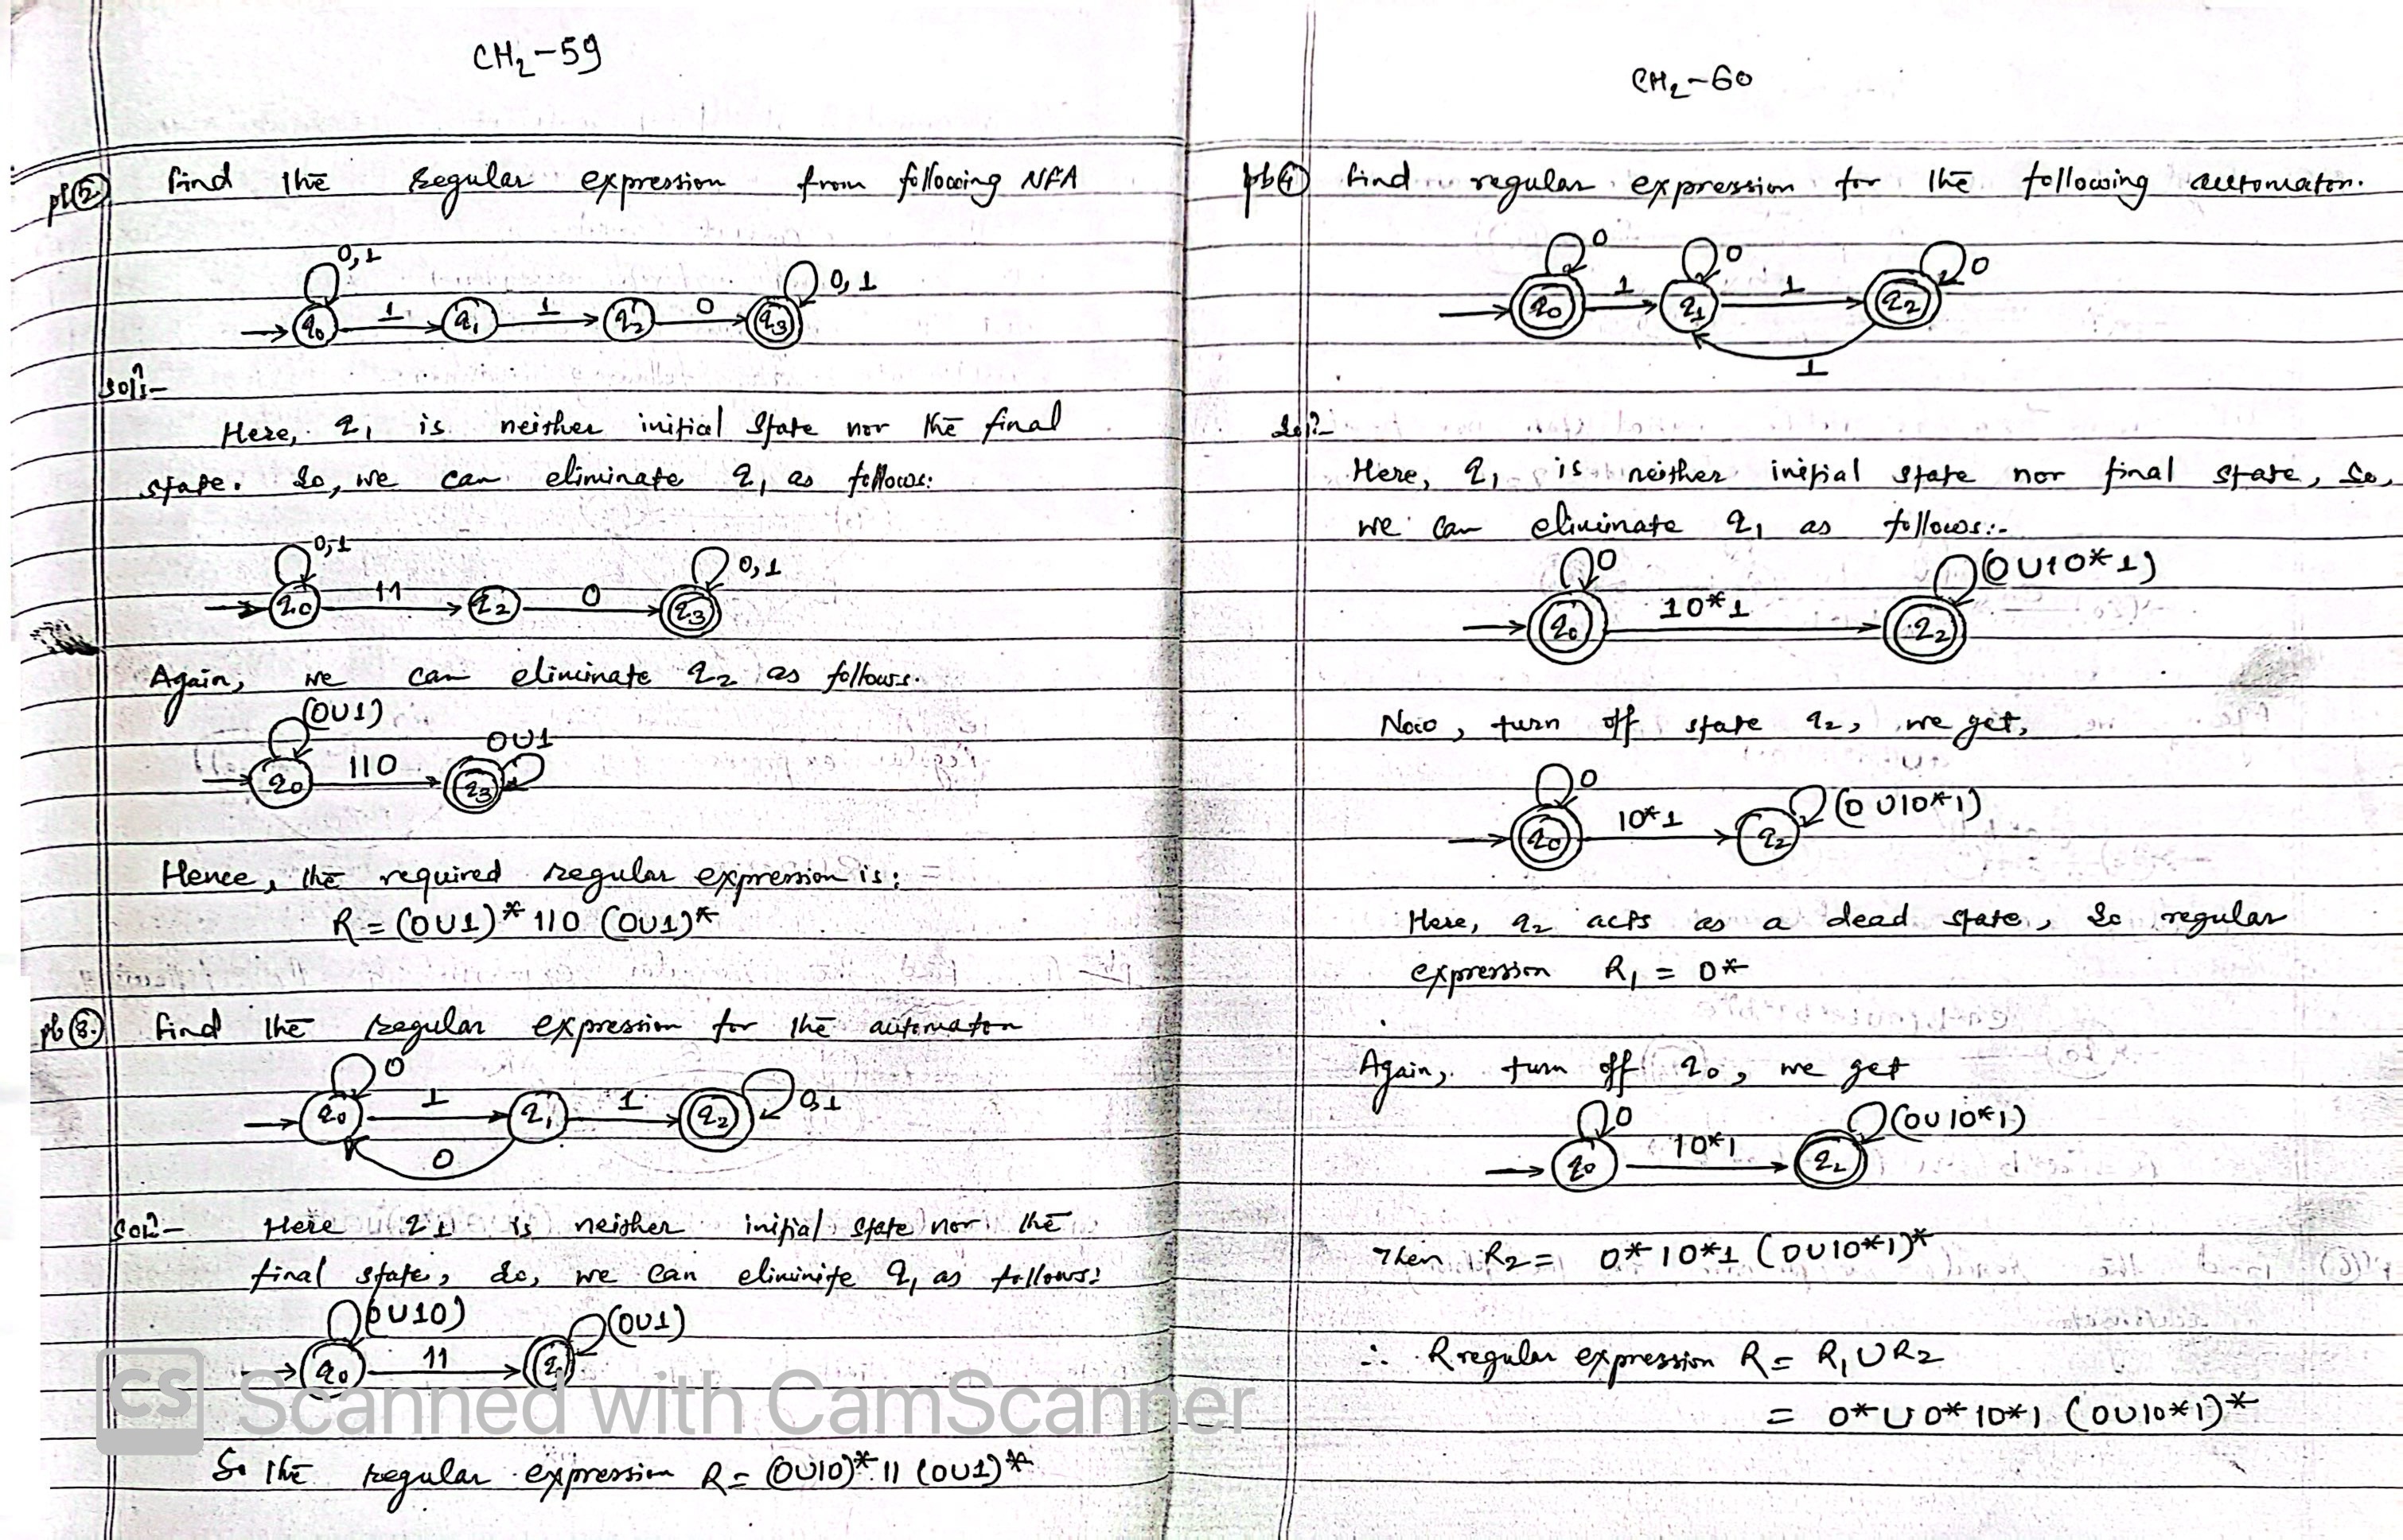 CH₂-59
pb(2.) Find the regular expression from following NFA
0,1
0,1
q₀ 1 q₁ 1 q₂ 0 q₃
Solⁿ:-
Here, q₁ is neither initial state nor the final
state. So, we can eliminate q₁ as follows:
0,1
0,1
q₀ 11 q₂ 0 q₃
Again, we can eliminate q₂ as follows.
(0∪1)
0∪1
q₀ 110 q₃
Hence, the required regular expression is:
R = (0∪1)* 110 (0∪1)*
pb(3.) Find the regular expression for the automaton
0
0,1
q₀ 1 q₁ 1 q₂
0
Solⁿ- Here q₁ is neither initial state nor the
final state, so, we can eliminite q₁ as follows:
(0∪10)
(0∪1)
q₀ 11
CS Scanned with CamScanner
So the regular expression R = (0∪10)* 11 (0∪1)*
CH₂-60
pb(4) Find regular expression for the following automaton.
0 0 0
q₀ 1 q₁ 1 q₂
1
Solⁿ-
Here, q₁ is neither initial state nor final state, So,
we can eliminate q₁ as follows:-
0
(0∪10*1)
q₀ 10*1 q₂
Now, turn off state q₂, we get,
0
(0∪10*1)
q₀ 10*1 q₂
Here, q₂ acts as a dead state, So regular
expression R₁ = 0*
Again, turn off q₀, we get
0
(0∪10*1)
q₀ 10*1 q₂
Then R₂ = 0* 10*1 (0∪10*1)*
∴ Rregular expression R = R₁ ∪ R₂
= 0* ∪ 0* 10*1 (0∪10*1)*